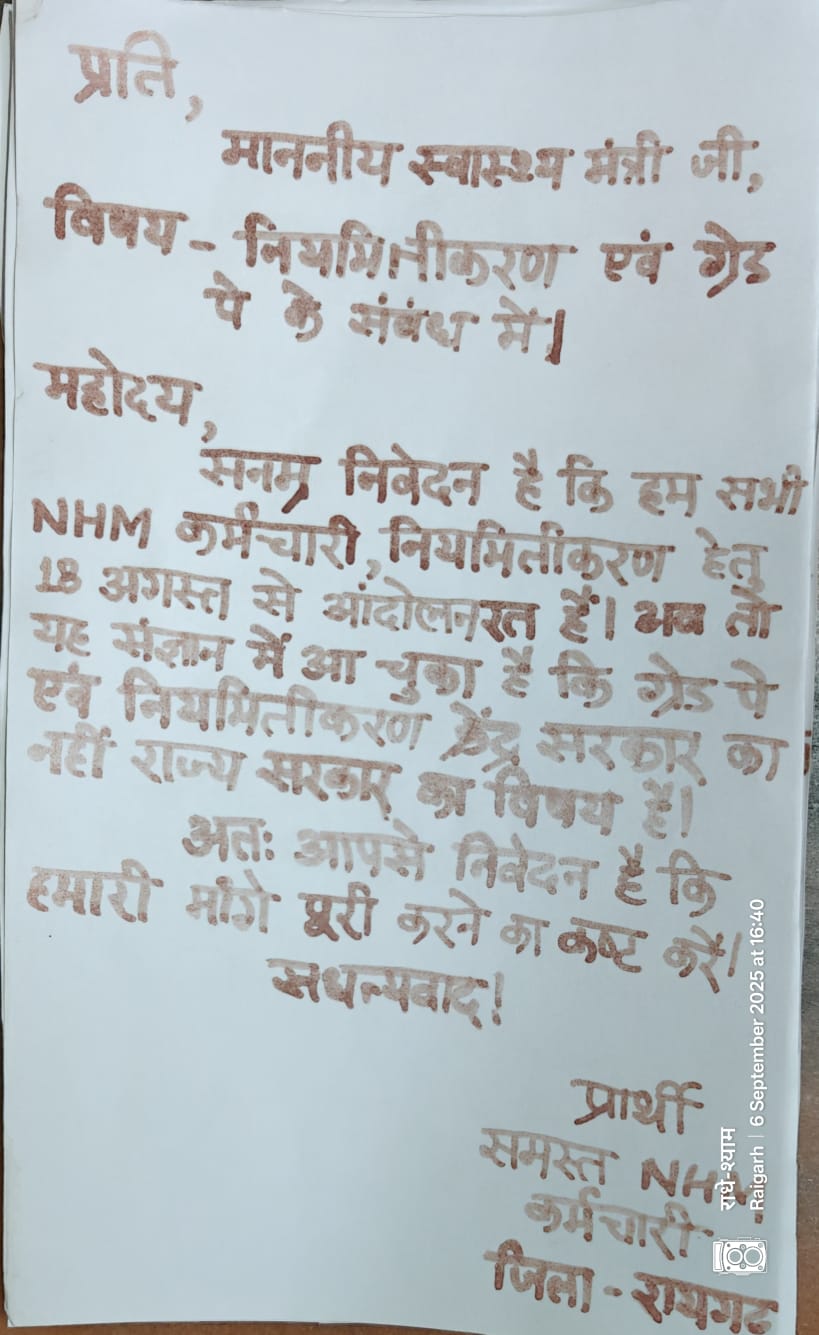 प्रति,
माननीय स्वास्थ्य मंत्री जी,
विषय - नियमितीकरण एवं ग्रेड
पे के संबंध में।
महोदय,
सनम्र निवेदन है कि हम सभी
NHM कर्मचारी, नियमितीकरण हेतु
18 अगस्त से आंदोलनरत हैं। अब तो
यह संज्ञान में आ चुका है कि ग्रेड पे
एवं नियमितीकरण केंद्र सरकार का
नहीं राज्य सरकार का विषय है।
अतः आपसे निवेदन है कि
हमारी मांगे पूरी करने का कष्ट करें।
सधन्यवाद!
प्रार्थी
समस्त NHM
कर्मचारी
जिला - रायगढ
राधे-श्याम
Raigarh | 6 September 2025 at 16:40